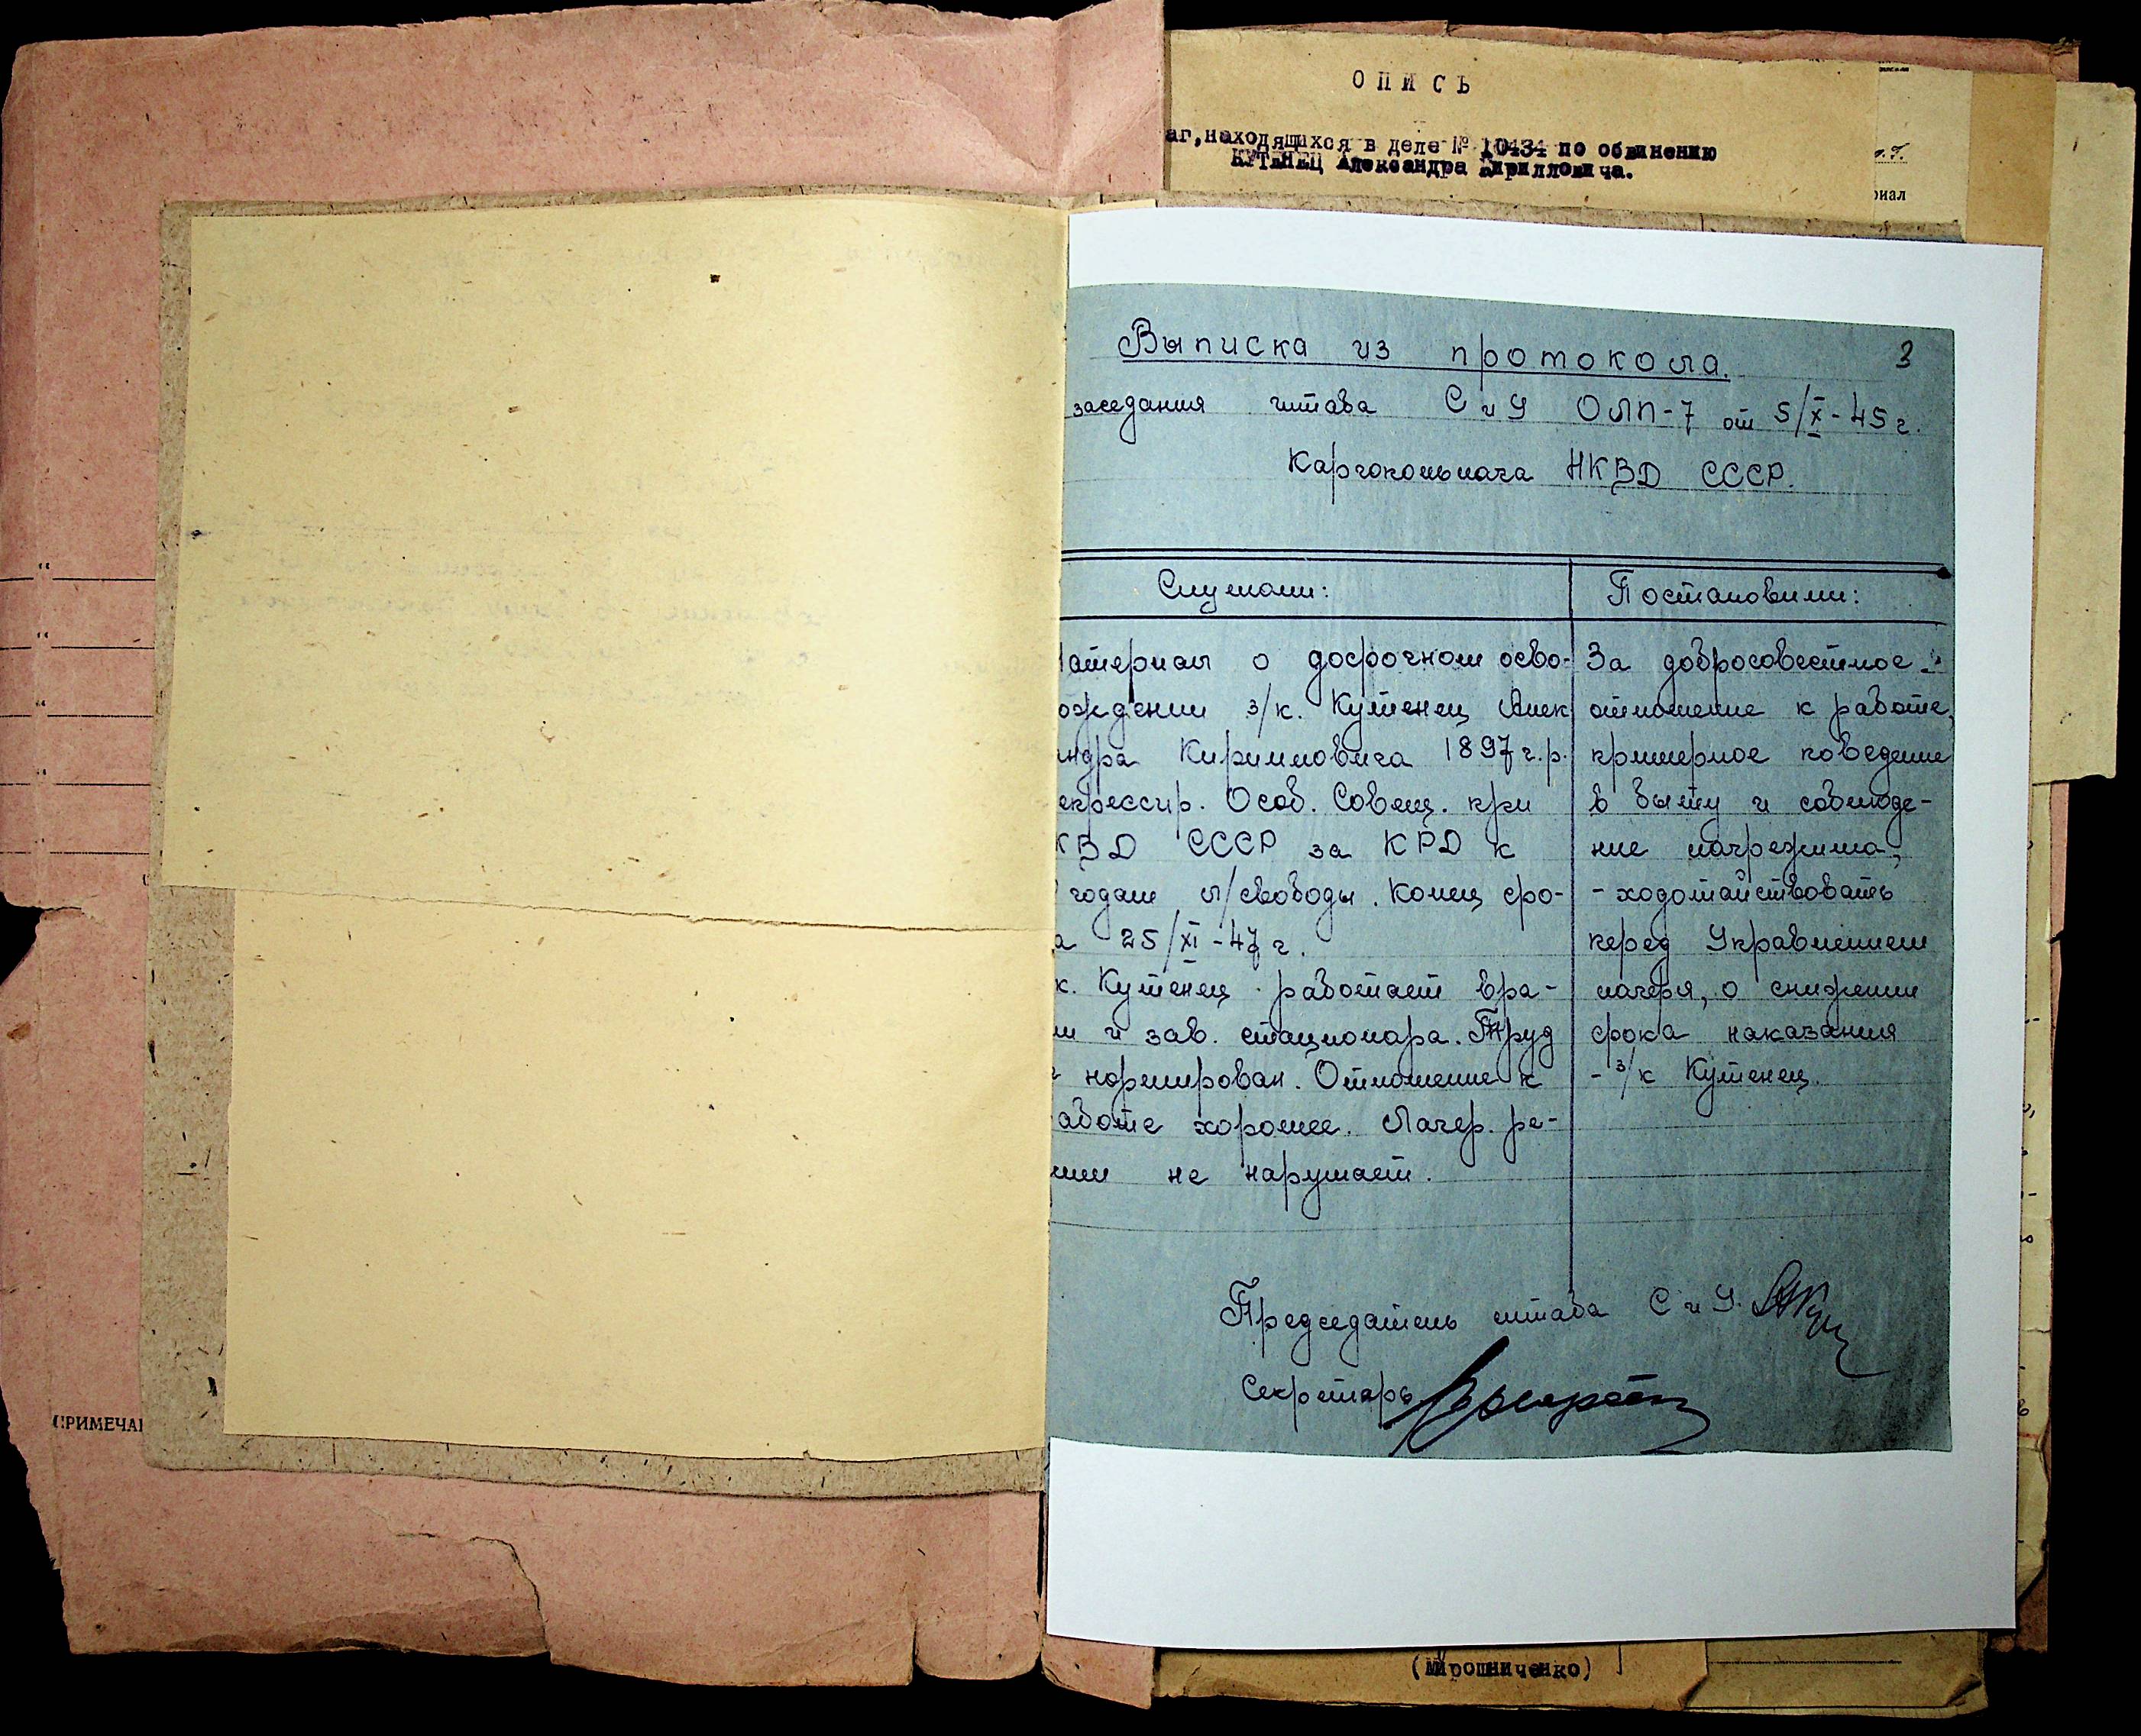 ОПИСЬ
аг, находящихся в деле № 10434 по обвинению
КУТЕНЕЦ Александра Кирилловича.
о.г.
риал
3
Выписка из протокола.
заседания штаба С и У ОЛП-7 от 5/X-45 г.
Каргопольлага НКВД СССР.
Слушали:
атериал о досрочном осво-
ождении з/к. Кутенец Алек
андра Кирилловича 1897 г.р.
епрессир. Особ. Совещ. при
КВД СССР за КРД к
годам л/свободы. Конец сро-
а 25/XI-47 г.
к. Кутенец работает вра-
м и зав. стационара. Труд
е нормирован. Отношение к
аботе хорошее. Лагер. ре-
жим не нарушает.
Постановили:
За добросовестное
отношение к работе,
примерное поведение
в быту и соблюде-
ние лагрежима,
- ходотайствовать
перед Управлением
лагеря, о снижении
срока наказания
- з/к Кутенец.
Председатель штаба С и У.
Секретарь
ПРИМЕЧА
(Мирошниченко)